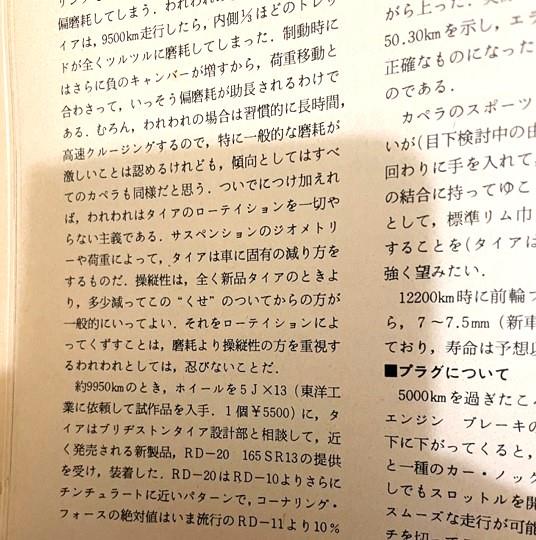 偏磨耗してしまう．われわれ
イアは，9500km走行したら，内側⅓ほどのトレッ
ドが全くツルツルに磨耗してしまった．制動時に
はさらに負のキャンバーが増すから，荷重移動と
合わさって，いっそう偏磨耗が助長されるわけで
ある．むろん，われわれの場合は習慣的に長時間，
高速クルージングするので，特に一般的な磨耗が
激しいことは認めるけれども，傾向としてはすべ
てのカペラも同様だと思う．ついでにつけ加えれ
ば，われわれはタイアのローテイションを一切や
らない主義である．サスペンションのジオメトリ
ーや荷重によって，タイアは車に固有の減り方を
するものだ．操縦性は，全く新品タイアのときよ
り，多少減ってこの“くせ”のついてからの方が
一般的にいってよい．それをローテイションによ
ってくずすことは，磨耗より操縦性の方を重視す
るわれわれとしては，忍びないことだ．
約9950kmのとき，ホイールを5J×13（東洋工
業に依頼して試作品を入手．1個¥5500）に，タ
イアはブリヂストンタイア設計部と相談して，近
く発売される新製品，RD-20 165SR13の提供
を受け，装着した．RD-20はRD-10よりさらに
チンチュラートに近いパターンで，コーナリング・
フォースの絶対値はいま流行のRD-11より10%
がら上った．
50.30kmを示し，エラ
正確なものになった
のである．
カペラのスポーツ
いが（目下検討中の由
回わりに手を入れて，
の結合に持ってゆこ
として，標準リム巾
することを（タイアは
強く望みたい．
12200km時に前輪
ら，7～7.5mm（新車
ており，寿命は予想以
■プラグについて
5000kmを過ぎたこ
エンジン ブレーキの
下に下がってくると，
と一種のカー・ノック
しでもスロットルを開
スムーズな走行が可能
チを切って